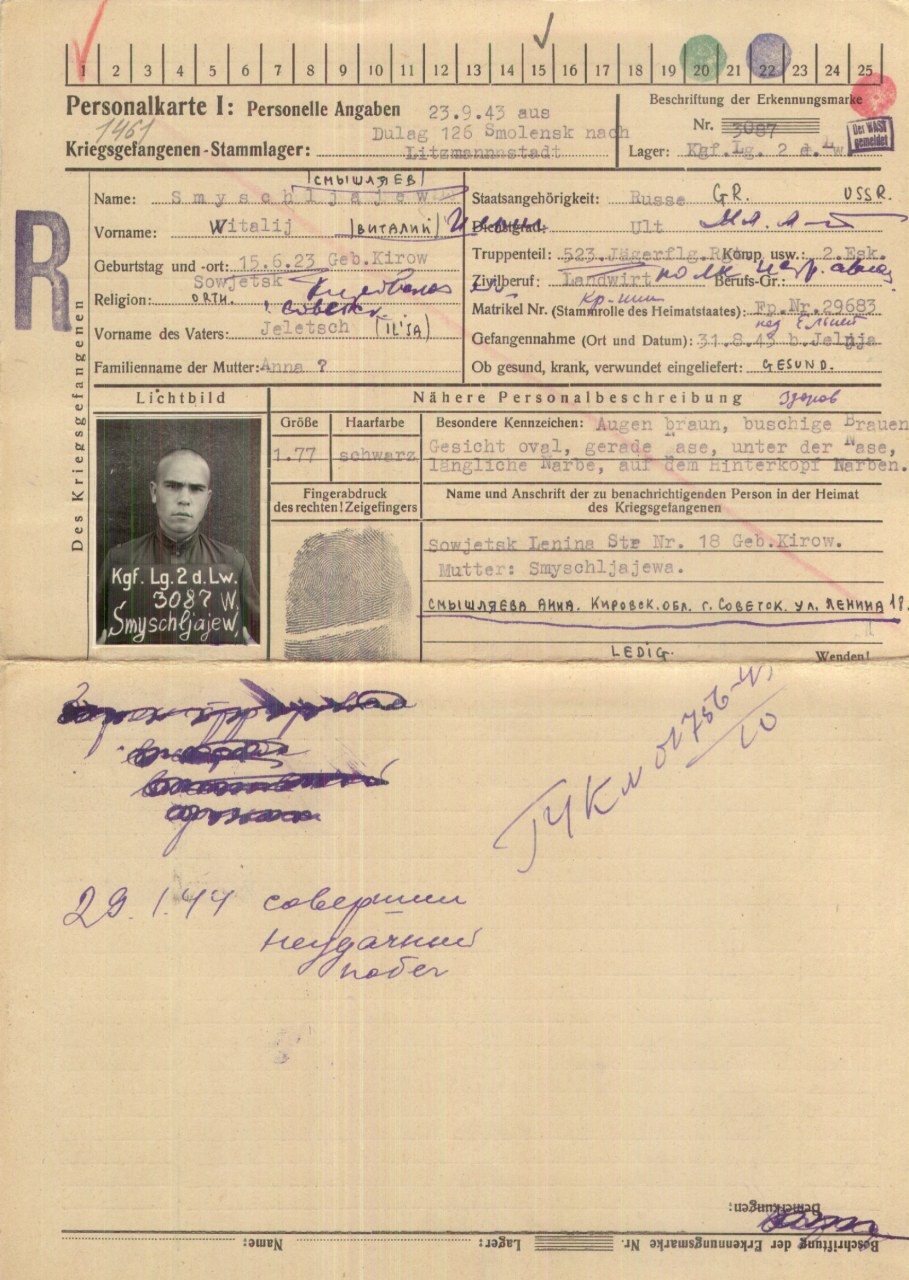 1 2 3 4 5 6 7 8 9 10 11 12 13 14 15 16 17 18 19 20 21 22 23 24 25
Personalkarte I: Personelle Angaben 23.9.43 aus
1461
Dulag 126 Smolensk nach
Kriegsgefangenen-Stammlager: Litzmannstadt
Beschriftung der Erkennungsmarke
Nr. 3087
Lager: Kgf.Lg. 2 d.Lw
Der WASt gemeldet
R
Des Kriegsgefangenen
(СМЫШЛЯЕВ)
Name: Smyschljajew
Vorname: Witalij (ВИТАЛИЙ)
Geburtstag und -ort: 15.6.23 Geb.Kirow
Sowjetsk
Religion: ORTH.
г. Советск
Vorname des Vaters: Jeletsch (ILIJA)
Familienname der Mutter: Anna ?
Staatsangehörigkeit: Russe GR. USSR.
Dienstgrad: Ult Мл. л-т
Truppenteil: 523.Jägerflg.Rgt Komp usw.: 2.Esk.
Zivilberuf: Landwirt полк истр. авиац Berufs-Gr.:
Кр-нин
Matrikel Nr. (Stammrolle des Heimatstaates): Fp.Nr.29683
под Ельней
Gefangennahme (Ort und Datum): 31.8.43 b.Jelnja
Ob gesund, krank, verwundet eingeliefert: GESUND.
здоров
Lichtbild
Nähere Personalbeschreibung
Größe
1.77
Haarfarbe
schwarz
Besondere Kennzeichen: Augen braun, buschige Brauen
Gesicht oval, gerade Nase, unter der Nase,
längliche Narbe, auf dem Hinterkopf Narben.
Fingerabdruck
des rechten! Zeigefingers
Name und Anschrift der zu benachrichtigenden Person in der Heimat
des Kriegsgefangenen
Sowjetsk Lenina Str Nr. 18 Geb.Kirow.
Mutter: Smyschljajewa.
СМЫШЛЯЕВА АННА. КИРОВСК. ОБЛ. г. СОВЕТСК. УЛ. ЛЕНИНА 18.
LEDIG.
Wenden!
Kgf. Lg. 2 d. Lw.
3087 W.
Smyschljajew,
ГУК
29.1.44 совершил
неудачный
побег
Bemerkungen:
Beschriftung der Erkennungsmarke Nr. Lager: Name: